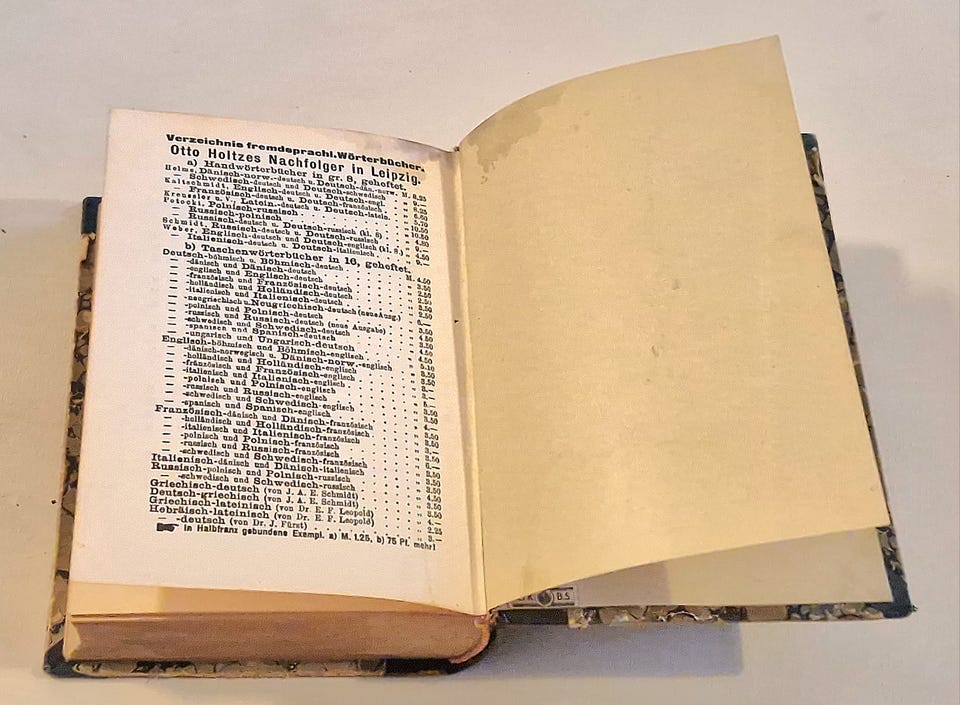 Verzeichnis fremdsprachl. Wörterbücher.
Otto Holtzes Nachfolger in Leipzig.
a) Handwörterbücher in gr. 8, geheftet.
Helms, Dänisch-norw.-deutsch u. Deutsch-dän.-norw. M. 8.25
— Schwedisch-deutsch und Deutsch-schwedisch
Kaltschmidt, Englisch-deutsch u. Deutsch-engl.
— Französisch-deutsch u. Deutsch-französisch
Kreussler u. V., Latein.-deutsch u. Deutsch-latein.
Potocki, Polnisch-russisch
— Russisch-polnisch
— Russisch-deutsch u. Deutsch-russisch (kl. 8)
Schmidt, Russisch-deutsch u. Deutsch-russisch
Weber, Englisch-deutsch und Deutsch-englisch (kl. 8.)
— Italienisch-deutsch u. Deutsch-italienisch
b) Taschenwörterbücher in 16, geheftet.
Deutsch-böhmisch u. Böhmisch-deutsch M. 4.50
— -dänisch und Dänisch-deutsch
— -englisch und Englisch-deutsch
— -französisch und Französisch-deutsch
— -holländisch und Holländisch-deutsch
— -italienisch und Italienisch-deutsch
— -neugriechisch u. Neugriechisch-deutsch (neue Ausg.)
— -polnisch und Polnisch-deutsch
— -russisch und Russisch-deutsch (neue Ausgabe)
— -schwedisch und Schwedisch-deutsch
— -spanisch und Spanisch-deutsch
— -ungarisch und Ungarisch-deutsch
Englisch-böhmisch und Böhmisch-englisch
— -dänisch-norwegisch u. Dänisch-norw.-englisch
— -holländisch und Holländisch-englisch
— -französisch und Französisch-englisch
— -italienisch und Italienisch-englisch
— -polnisch und Polnisch-englisch
— -russisch und Russisch-englisch
— -schwedisch und Schwedisch-englisch
— -spanisch und Spanisch-englisch
Französisch-dänisch und Dänisch-französisch
— -holländisch und Holländisch-französisch
— -italienisch und Italienisch-französisch
— -polnisch und Polnisch-französisch
— -russisch und Russisch-französisch
— -schwedisch und Schwedisch-französisch
Italienisch-dänisch und Dänisch-italienisch
Russisch-polnisch und Polnisch-russisch
— -schwedisch und Schwedisch-russisch
Griechisch-deutsch (von J. A. E. Schmidt)
Deutsch-griechisch (von J. A. E. Schmidt)
Griechisch-lateinisch (von Dr. E. F. Leopold)
Hebräisch-lateinisch (von Dr. E. F. Leopold)
— -deutsch (von Dr. J. Fürst)
in Halbfranz gebundene Exempl. a) M. 1.25, b) 75 Pf. mehr!
B.S